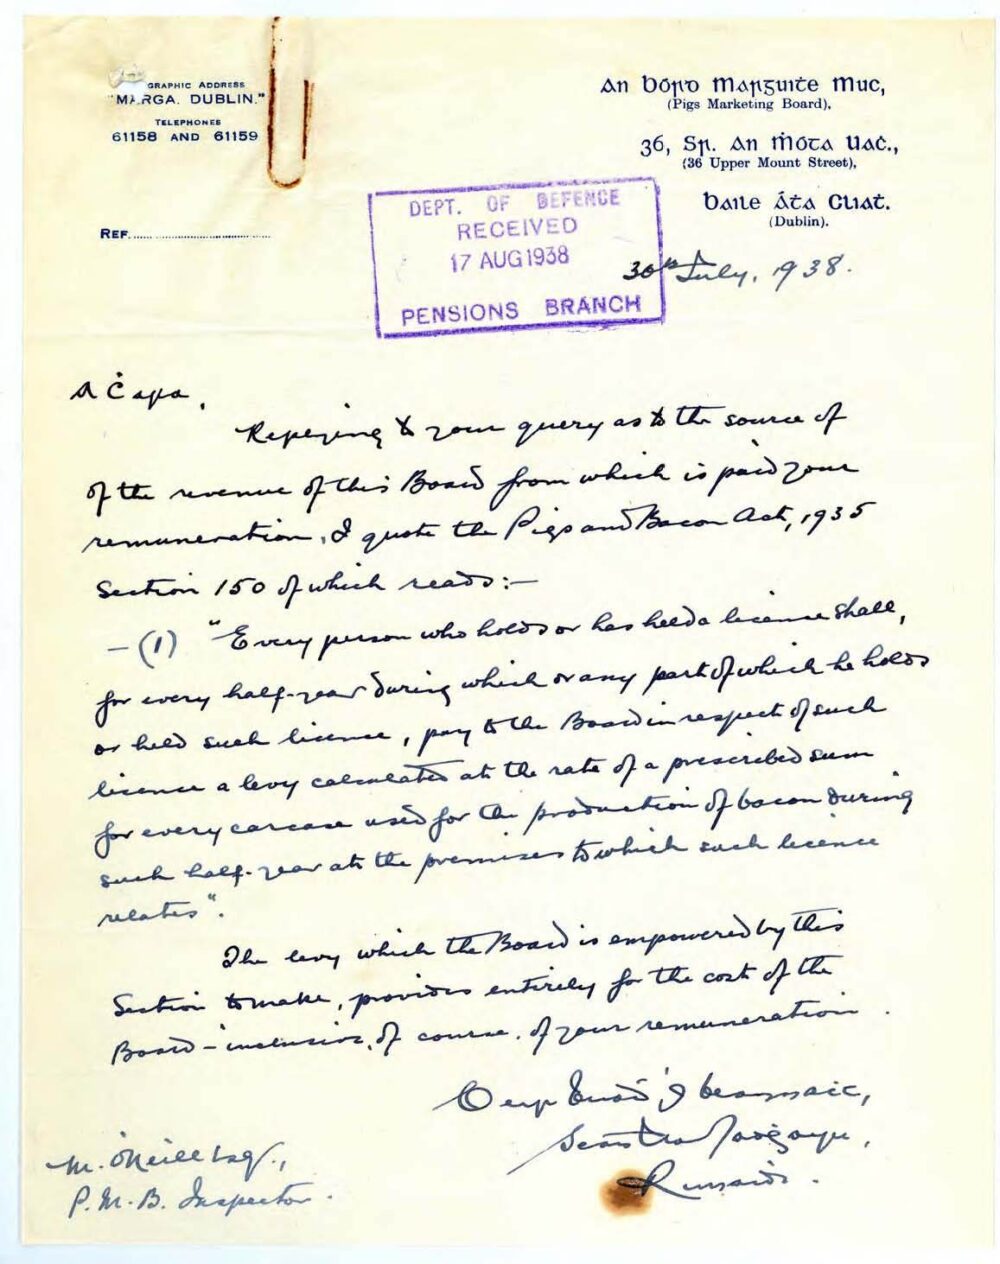 GRAPHIC ADDRESS
"MARGA. DUBLIN."
TELEPHONES
61158 AND 61159
REF.
An Bórd Marguiṫe Muc,
(Pigs Marketing Board),
36, Sr. an Ṁóta Uaċ.,
(36 Upper Mount Street),
Baile Áta Cliaṫ.
(Dublin).
DEPT. OF DEFENCE
RECEIVED
17 AUG 1938
PENSIONS BRANCH
30th July, 1938.
A Ċara,
Replying to your query as to the source of
of the revenue of this Board from which is paid your
remuneration, I quote the Pigs and Bacon Act, 1935
Section 150 of which reads:—
—(1) "Every person who holds or has held a licence shall,
for every half-year during which or any part of which he holds
or held such licence, pay to the Board in respect of such
licence a levy calculated at the rate of a prescribed sum
for every carcase used for the production of bacon during
such half-year at the premises to which such licence
relates".
The levy which the Board is empowered by this
Section to make, provides entirely for the cost of the
Board – inclusive, of course, of your remuneration.
Seán
Rúnaí.
M. O'Neill Esq.,
P.M.B. Inspector.